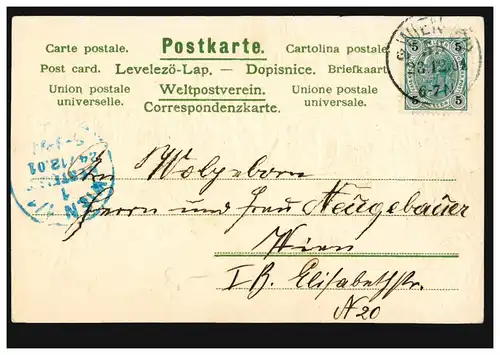 Carte postale. Postkarte. Cartolina postale.
Post card. Levelezö-Lap. — Dopisnice. Briefkaart
Union postale Weltpostverein. Unione postale
universelle. Correspondenzkarte. universale.
WIEN
12
6-7
5 5
5 5
24/12.01
WIEN 1
An Wolgeborn
Herrn und Frau Neugebauer
Wien
I B. Elisabethstr.
N 20